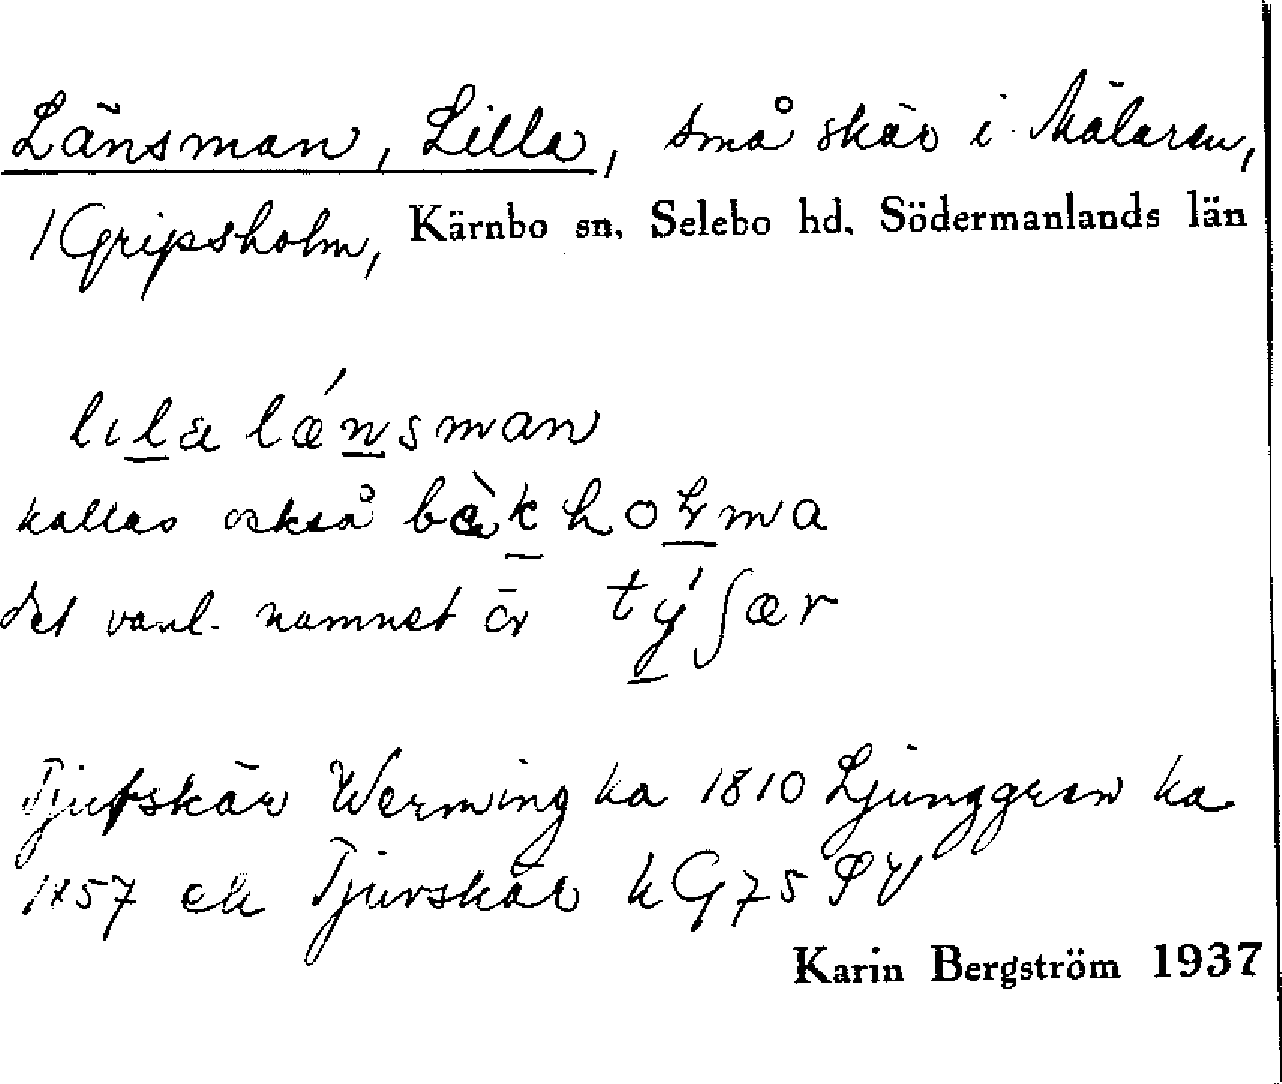 Länsman, Lilla, små skär i Mälaren,
/Gripsholm, Kärnbo sn. Selebo hd. Södermanlands län
lıla lǽnsman
kallas också bæ̀khoɫma
det vanl. namnet är tý∫ær
Tjufskär Werming ka 1810 Ljunggren ka
1857 ek Tjuvskär k G 75 SV
Karin Bergström 1937